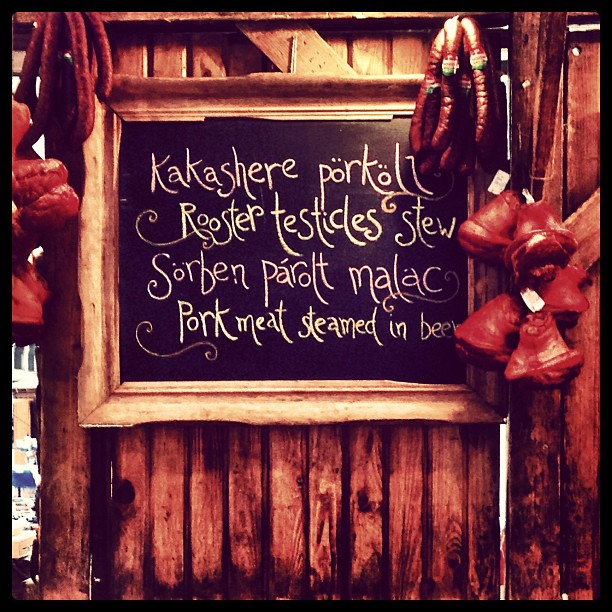 Kakashere pörkölt
Rooster testicles stew
Sörben párolt malac
Pork meat steamed in beer